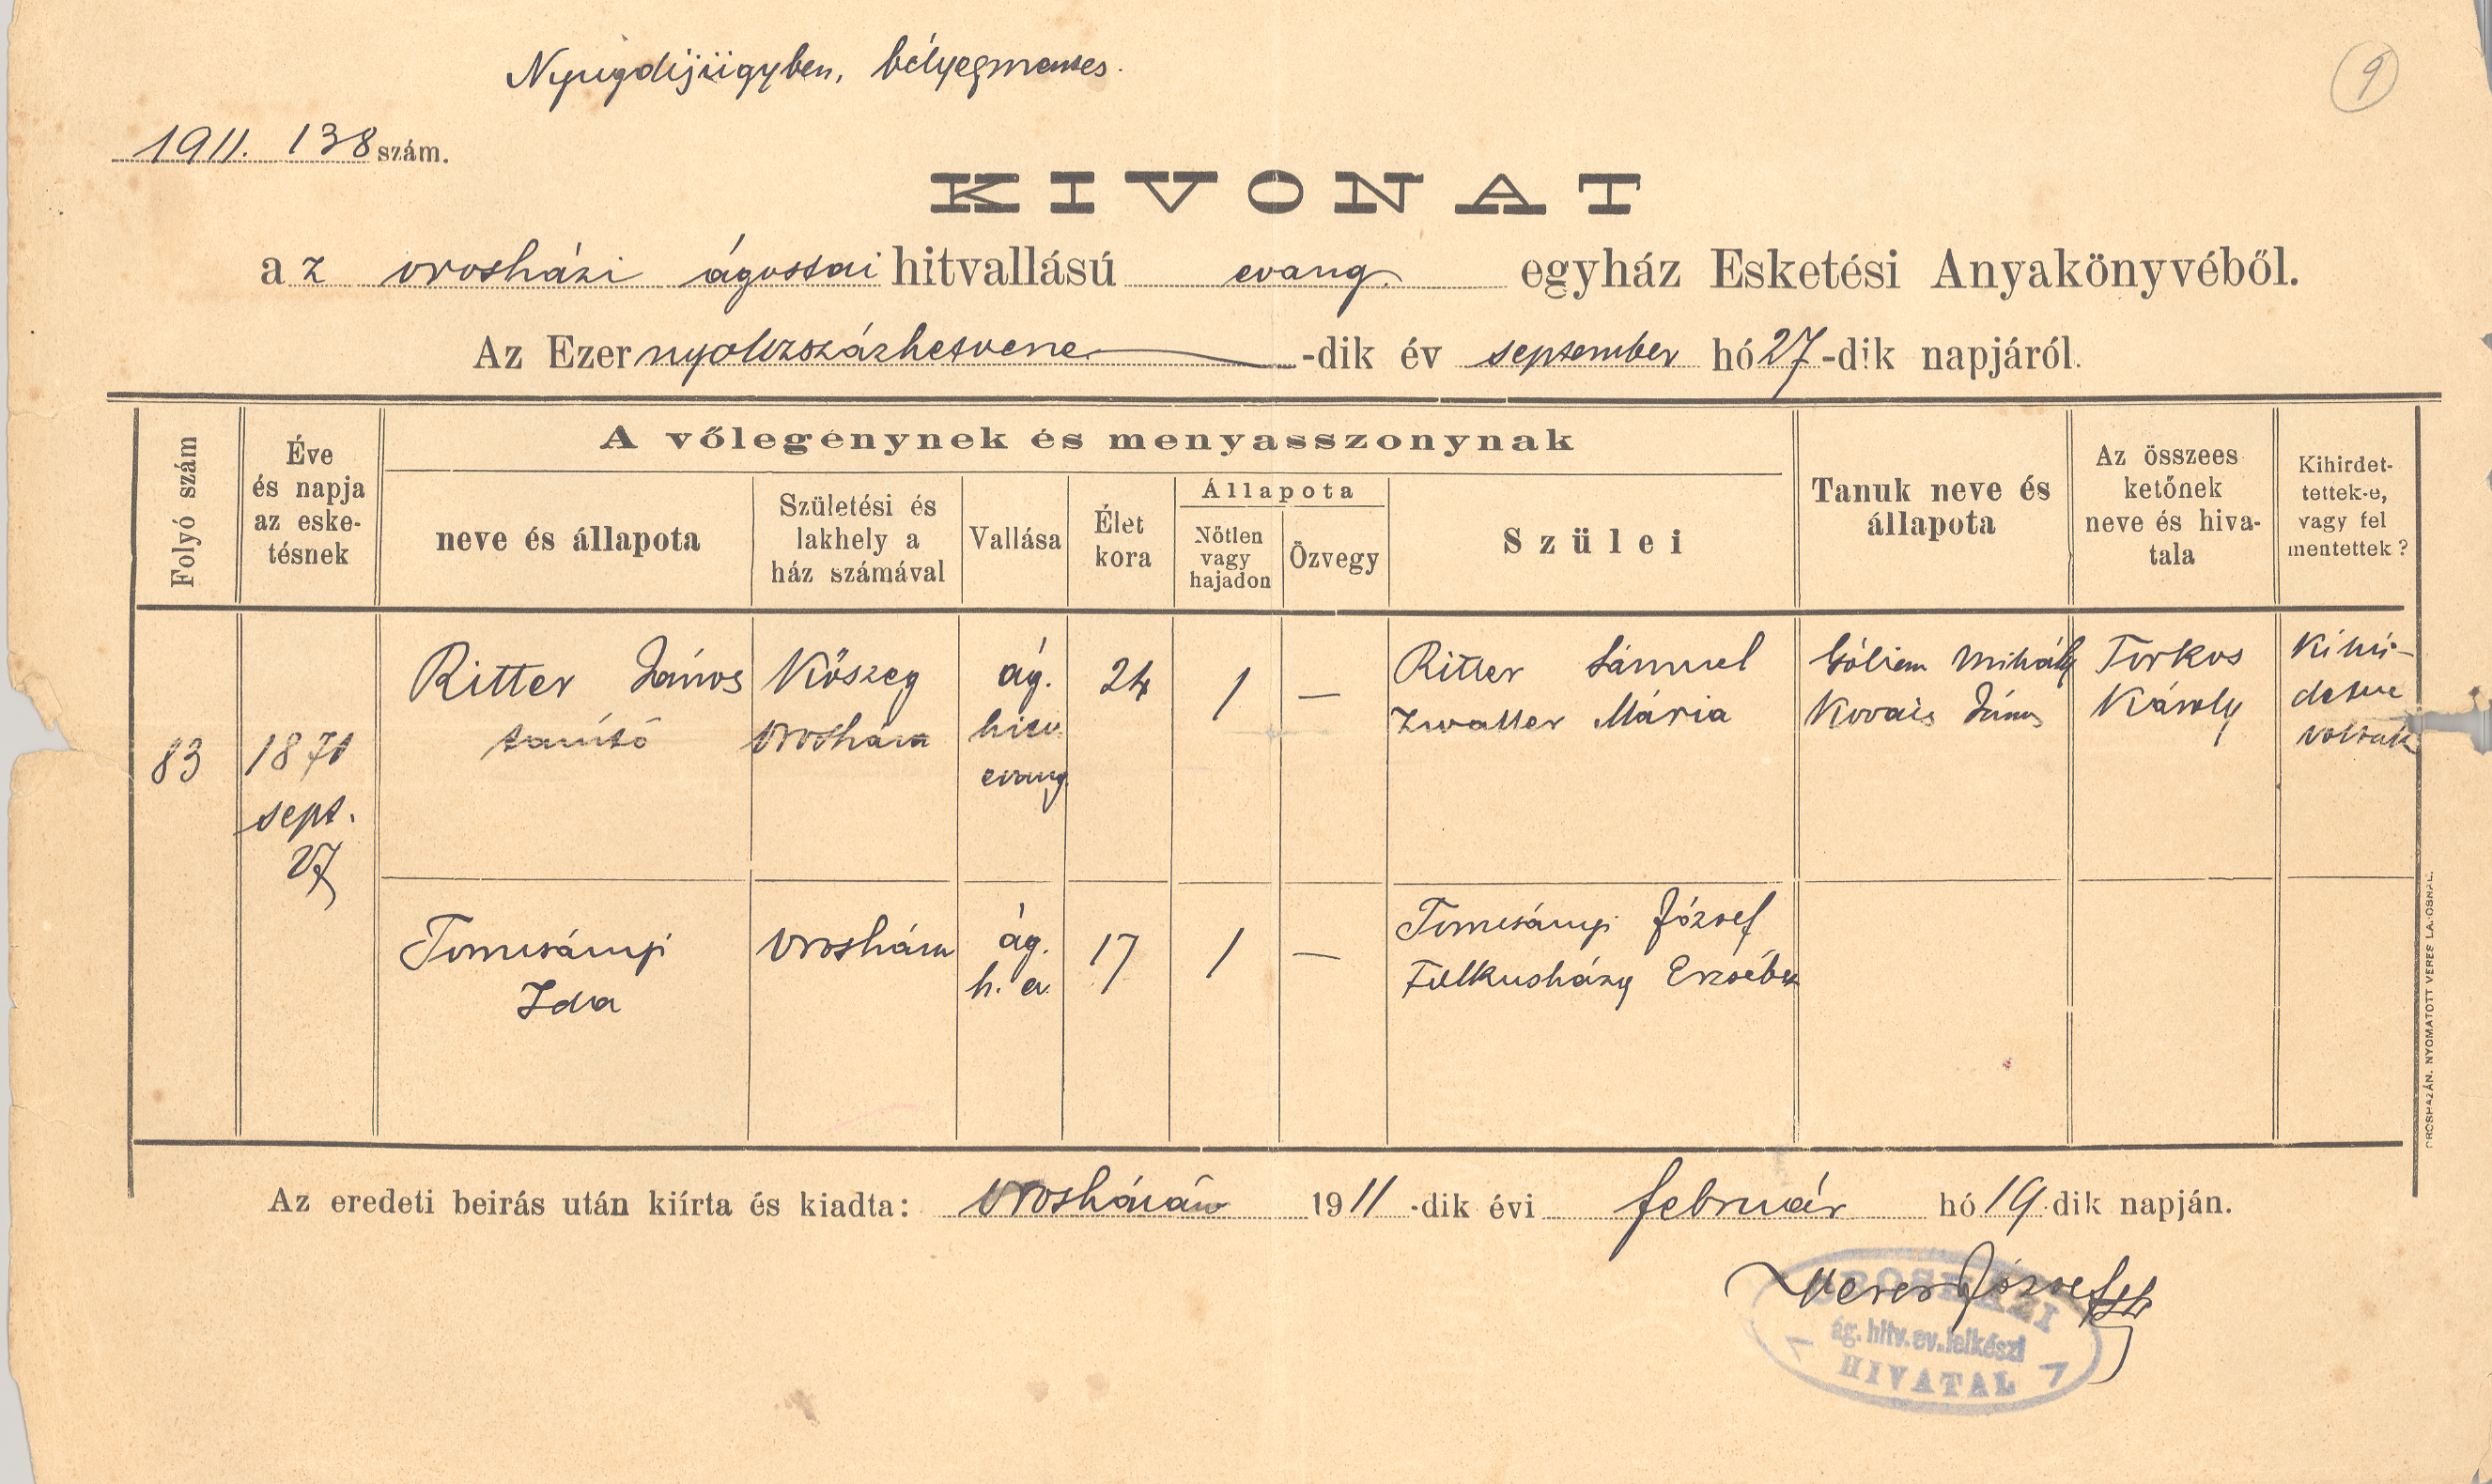 Nyugdíjügyben, bélyegmentes.
9
1911. 138 szám.
KIVONAT
az orosházi ágostai hitvallású evang. egyház Esketési Anyakönyvéből.
Az Ezer nyolczszázhetvene -dik év september hó 27-dik napjáról.
Folyó szám
Éve
és napja
az eske-
tésnek
A vőlegénynek és menyasszonynak
neve és állapota
Születési és
lakhely a
ház számával
Vallása
Élet
kora
Állapota
Nőtlen
vagy
hajadon
Özvegy
Szülei
Tanuk neve és
állapota
Az összees
ketőnek
neve és hiva-
tala
Kihirdet-
tettek-e,
vagy fel
mentettek?
83
1870
sept.
27
Ritter János
tanító
Kőszeg
Orosháza
ág.
hitv.
evang.
24
1
—
Ritter Sámuel
Zwaller Mária
Mihály
Kovács János
Torkos
Károly
Kihir-
detve
voltak
Tomcsányi
Ida
Orosháza
ág.
h. ev.
17
1
—
Tomcsányi József
Erzsébet
Az eredeti beirás után kiírta és kiadta: Orosházán 1911-dik évi február hó 19 dik napján.
Veres József
OROSHÁZI
ág. hitv. ev. lelkészi
HIVATAL
OROSHÁZÁN, NYOMATOTT VERES LAJOSNÁL.